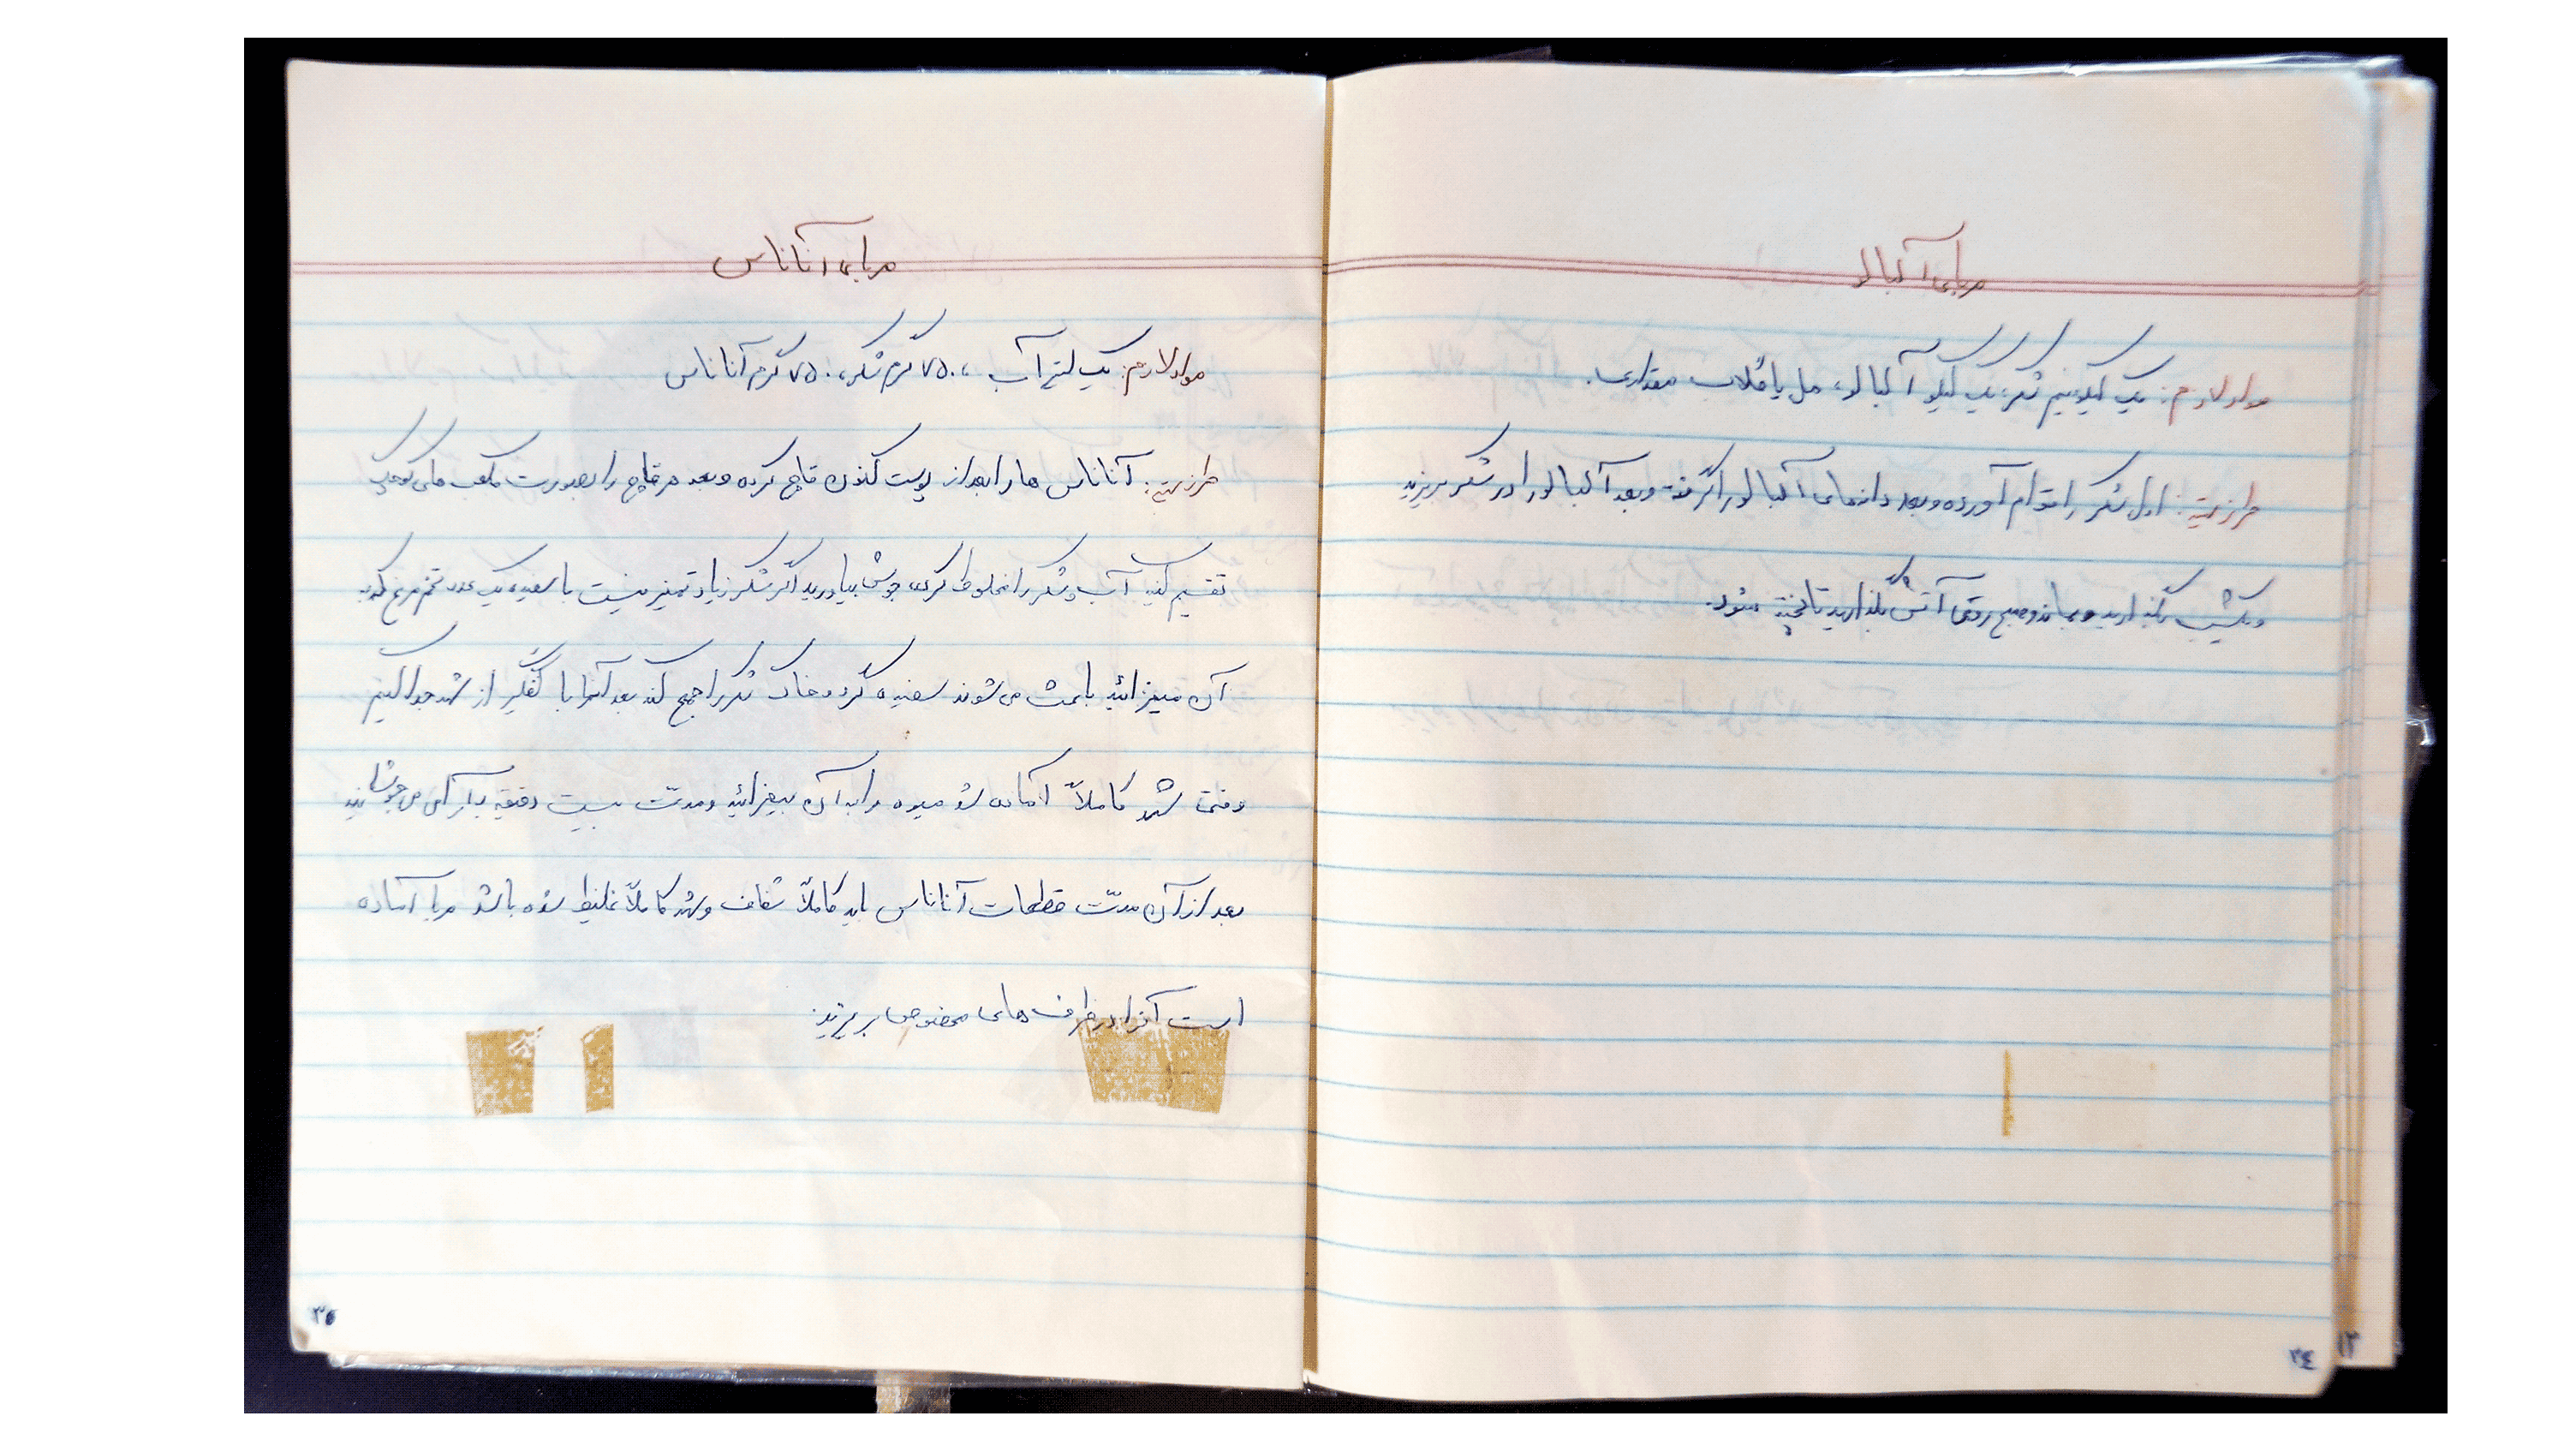 مربای آلبالو
مواد لازم: یک کیلو نیم شکر، یک کیلو آلبالو، هل یا گلاب مقداری.
طرز تهیه: اول شکر را قوام آورده و بعد دانه‌های آلبالو را گرفته و بعد آلبالو را در شکر بریزید
و یکشب بگذارید بماند و صبح روی آتش بگذارید تا پخته شود.
۳۴
۱۲
مربای آناناس
مواد لازم: یک لیتر آب، ۷۵۰ گرم شکر، ۷۵۰ گرم آناناس
طرز تهیه: آناناس ها را بعد از پوست کندن قاچ کرده و بعد هر قاچ را بصورت مکعب های کوچک
تقسیم کنید آب و شکر را مخلوط کرده جوش بیاورید اگر شکر زیاد تمیز نیست با سفیده یک عدد تخم مرغ که به
آن میفزائید باعث می شوند سفیده گرد و خاک شکر را جمع کند بعد آنرا با کفگیر از شهد جدا کنیم
وقتی شهد کاملاً آماده شد میوه را به آن بیفزائید و مدت بیست دقیقه به آرامی می جوشانید
بعد از آن مدت قطعات آناناس باید کاملاً شفاف و شهد کاملاً غلیظ شده باشد مربا آماده
است آنرا در ظرف های مخصوص بریزید.
۳۵